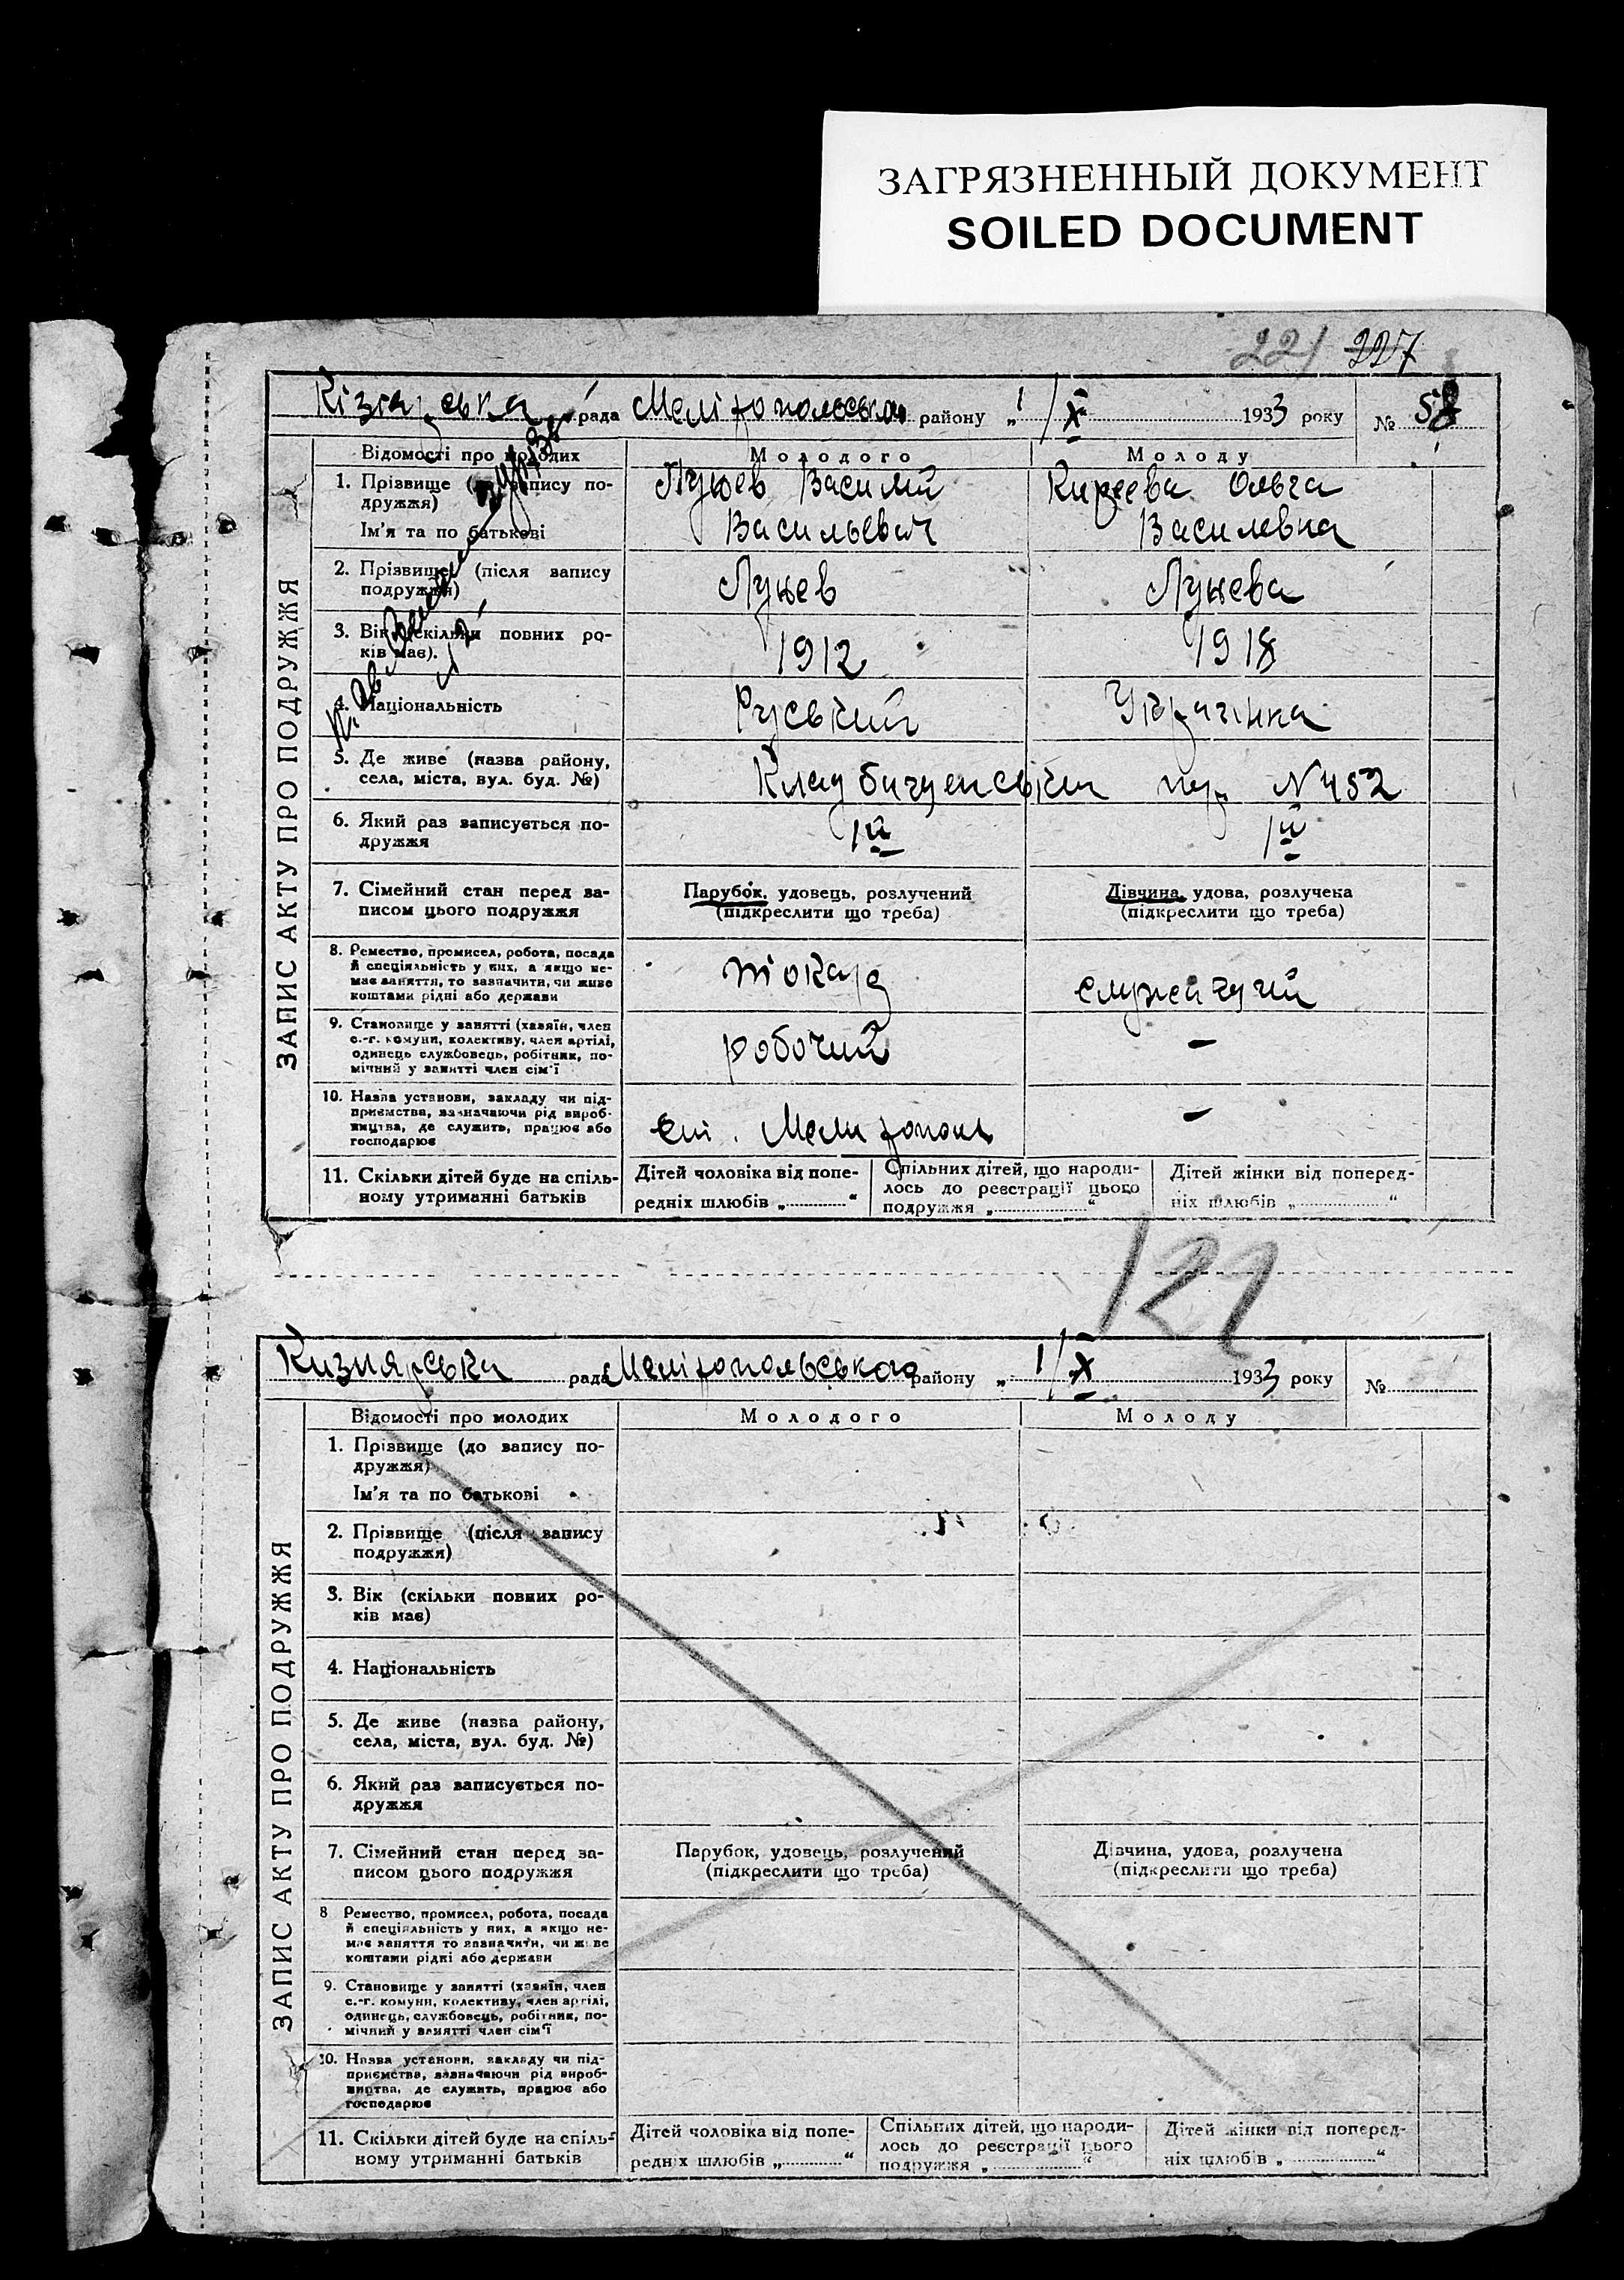 ЗАГРЯЗНЕННЫЙ ДОКУМЕНТ
SOILED DOCUMENT
221 227
Кізіярська рада Мелітопольського району „ 1/X 1933 року № 58
ЗАПИС АКТУ ПРО ПОДРУЖЖЯ
Відомості про молодих Молодого Молоду
1. Прізвище (до запису по-
дружжя)
Ім'я та по батькові
Лунев Василий
Васильевич
Киреева Ольга
Василевна
2. Прізвище (після запису
подружжя)
Лунев Лунева
3. Вік (скільки повних ро-
ків має).
1912 1918
4. Національність
Руський Українка
5. Де живе (назва району,
села, міста, вул. буд. №)
N 452
6. Який раз записується по-
дружжя
1й 1й
7. Сімейний стан перед за-
писом цього подружжя
Парубок, удовець, розлучений
(підкреслити що треба)
Дівчина, удова, розлучена
(підкреслити що треба)
8. Ремество, промисел, робота, посада
й спеціяльність у них, а якщо не-
має заняття, то зазначити, чи живе
коштами рідні або держави
токарь
9. Становище у занятті (хазяїн, член
с.-г. комуни, колективу, член артілі,
одинець службовець, робітник, по-
мічний у занятті член сім'ї
робочий -
10. Назва установи, закладу чи під-
приємства, зазначаючи рід вироб-
ництва, де служить, працює або
господарює
ст. Мелитополь -
11. Скільки дітей буде на спіль-
ному утриманні батьків
Дітей чоловіка від попе-
редніх шлюбів „ “
Спільних дітей, що народи-
лось до реєстрації цього
подружжя „ “
Дітей жінки від поперед-
ніх шлюбів „ “
Кизиярська рада Мелітопольського району „ 1/X 1933 року №
ЗАПИС АКТУ ПРО ПОДРУЖЖЯ
Відомості про молодих Молодого Молоду
1. Прізвище (до запису по-
дружжя)
Ім'я та по батькові
2. Прізвище (після запису
подружжя)
3. Вік (скільки повних ро-
ків має)
4. Національність
5. Де живе (назва району,
села, міста, вул. буд. №)
6. Який раз записується по-
дружжя
7. Сімейний стан перед за-
писом цього подружжя
Парубок, удовець, розлучений
(підкреслити що треба)
Дівчина, удова, розлучена
(підкреслити що треба)
8 Ремество, промисел, робота, посада
й спеціяльність у них, а якщо не-
має заняття то зазначити, чи живе
коштами рідні або держави
9. Становище у занятті (хазяїн, член
с.-г. комуни, колективу, член артілі,
одинець, службовець, робітник, по-
мічний у занятті член сім'ї
10. Назва установи, закладу чи під-
приємства, зазначаючи рід вироб-
ництва, де служить, працює або
господарює
11. Скільки дітей буде на спіль-
ному утриманні батьків
Дітей чоловіка від попе-
редніх шлюбів „ “
Спільних дітей, що народи-
лось до реєстрації цього
подружжя „ “
Дітей жінки від поперед-
ніх шлюбів „ “